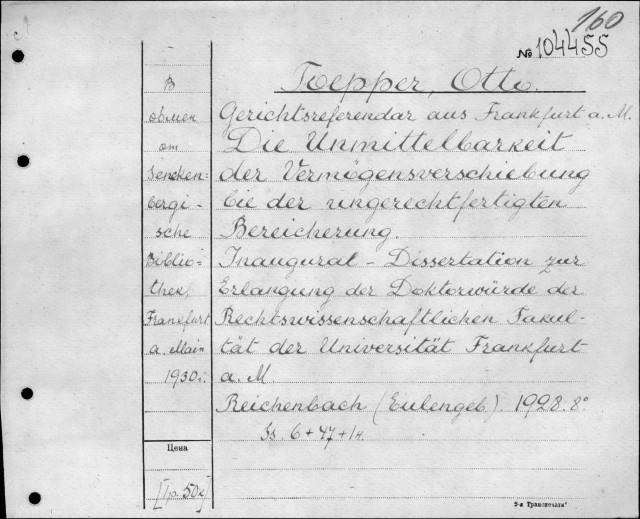 160
№ 104455
Toepper, Otto.
Gerichtsreferendar aus Frankfurt a. M.
Die Unmittelbarkeit
der Vermögensverschiebung
bie der ungerechtfertigten
Bereicherung.
Inaugural - Dissertation zur
Erlangung der Doktorwürde der
Rechtswissenschaftlichen Fakul-
tät der Universität Frankfurt
a. M.
Reichenbach (Eulengeb). 1928. 8°
Ss. 6+47+1н.
В
обмен
от
Sencken-
bergi-
sche
Biblio-
thek,
Frankfurt
a. Main
1930г.
Цена
[1р. 50к]
5-я Транспечати"